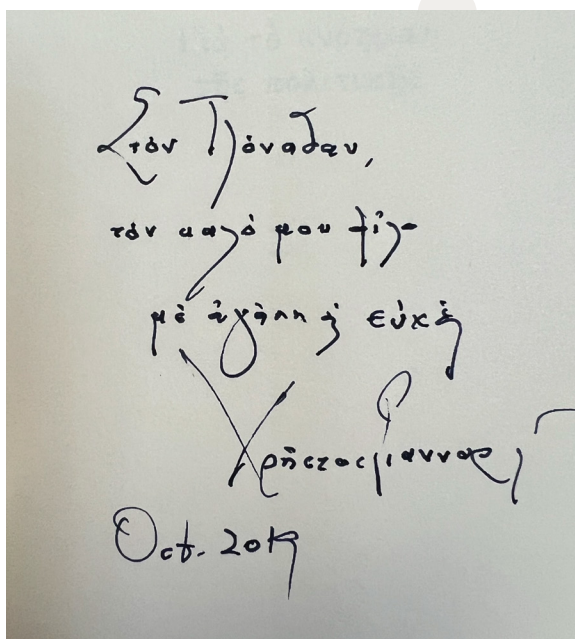 Στὸν Τζόναθαν,
τὸν καλό μου φίλο
μὲ ἀγάπη κ εὐχὲς
Χρῆστος Γιανναρᾶς
Oct. 2019